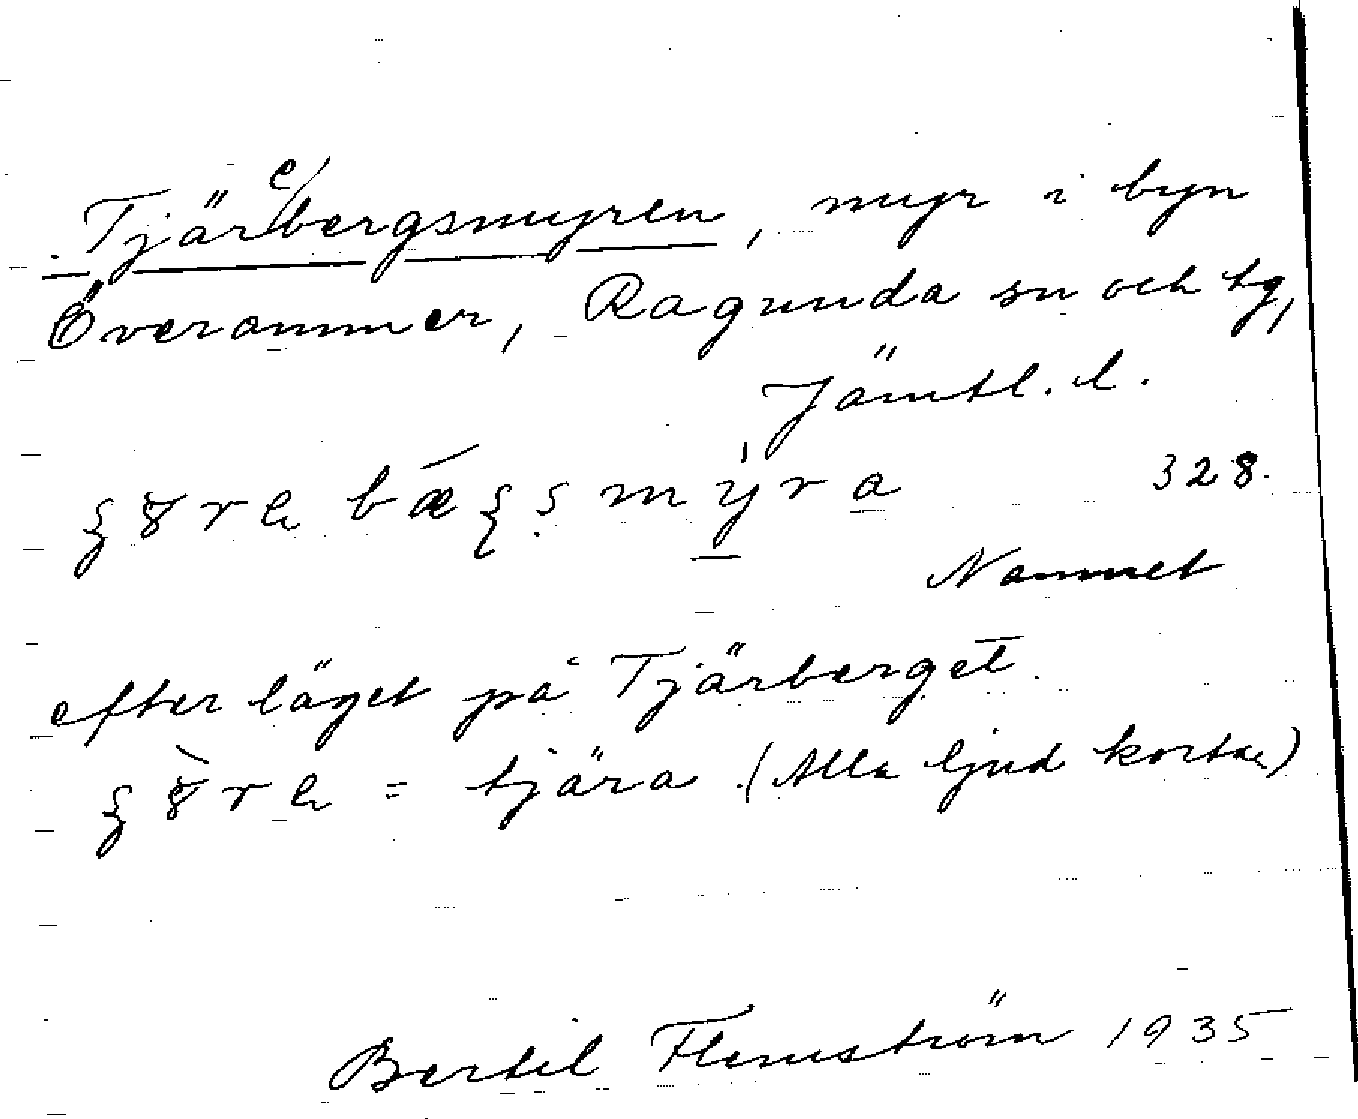 Tjärebergsmyren, myr i byn
Överammer, Ragunda sn och tg,
Jämtl. l.
328.
Namnet
efter läget på Tjärberget.
= tjära. (Alla ljud korta)
Bertil Flemström 1935